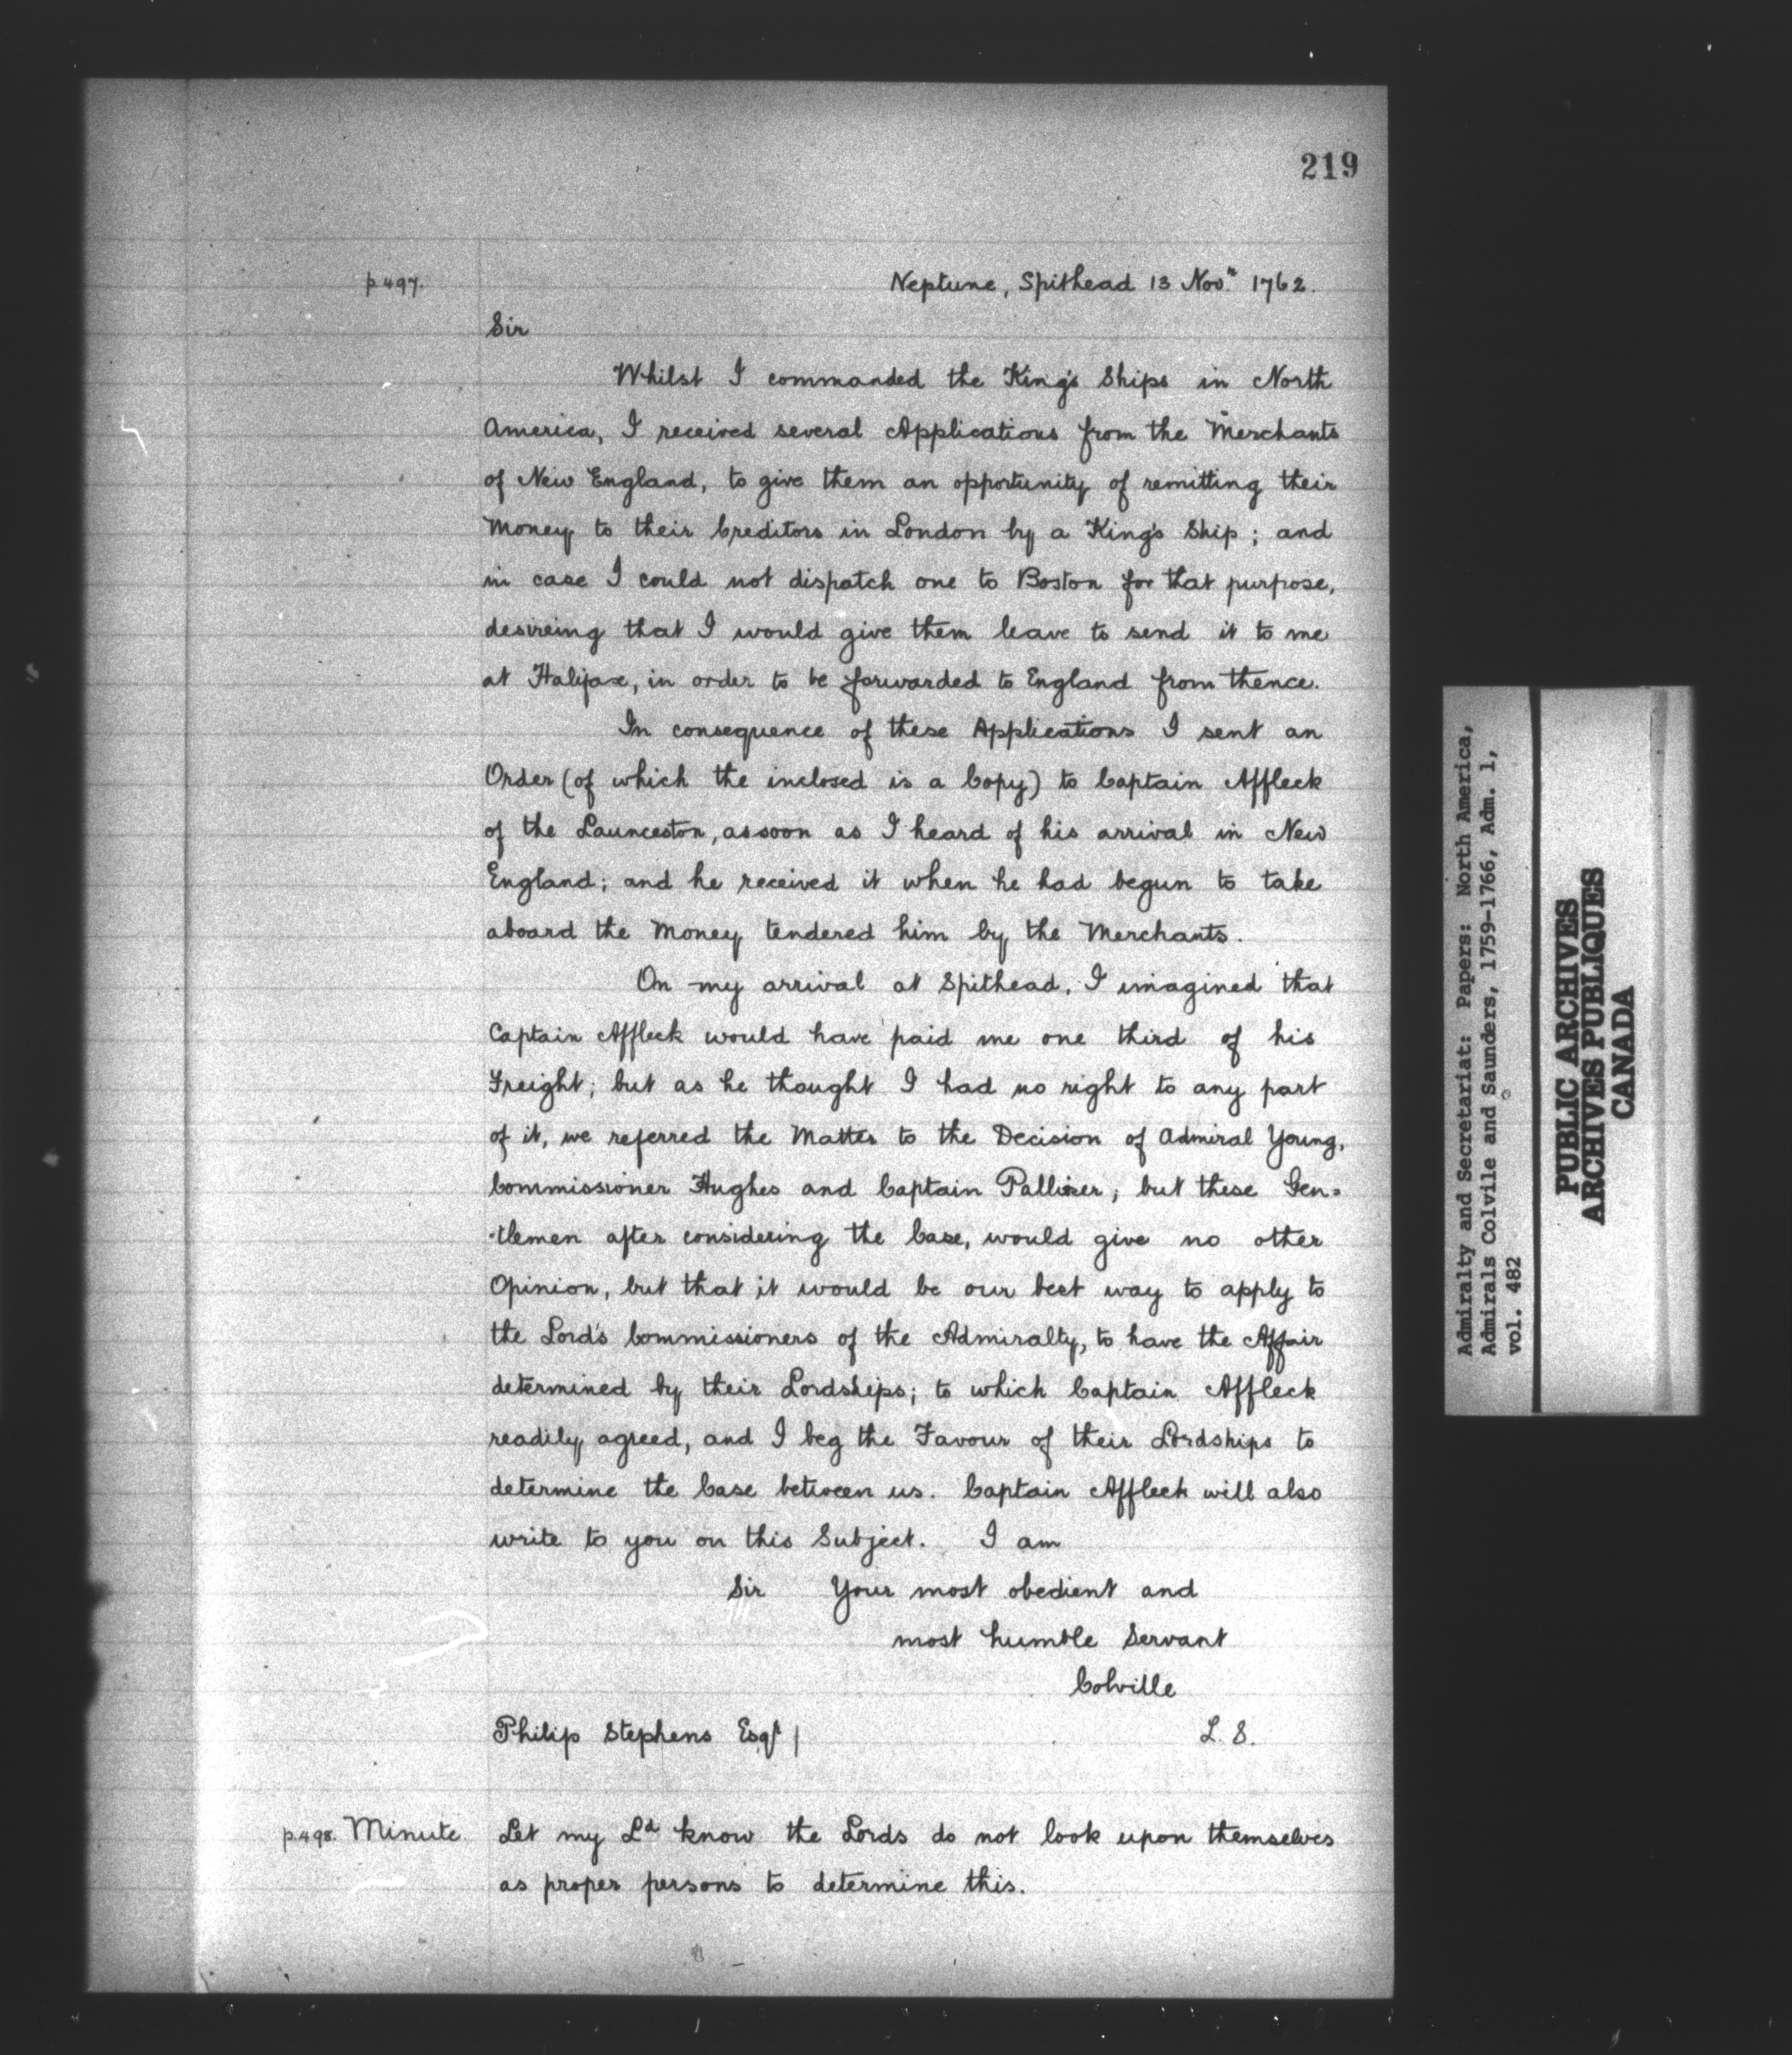 219
p 497.
Neptune, Spithead 13 Novr. 1762.
Sir
Whilst I commanded the King's Ships in North
America, I received several Applications from the Merchants
of New England, to give them an opportunity of remitting their
Money to their Creditors in London by a King's Ship; and
in case I could not dispatch one to Boston for that purpose,
desireing that I would give them leave to send it to me
at Halifax, in order to be forwarded to England from thence.
In consequence of these Applications I sent an
Order (of which the inclosed is a Copy) to Captain Affleck
of the Launceston, assoon as I heard of his arrival in New
England; and he received it when he had begun to take
aboard the Money tendered him by the Merchants.
On my arrival at Spithead, I imagined that
Captain Affleck would have paid me one third of his
Freight; but as he thought I had no right to any part
of it, we referred the Matter to the Decision of Admiral Young,
Commissioner Hughes and Captain Palliser; but these Gen=
-tlemen after considering the Case, would give no other
Opinion, but that it would be our best way to apply to
the Lord's Commissioners of the Admiralty, to have the Affair
determined by their Lordships; to which Captain Affleck
readily agreed, and I beg the Favour of their Lordships to
determine the Case between us. Captain Affleck will also
write to you on this Subject. I am
Sir Your most obedient and
most humble Servant
Colville
Philip Stephens Esqr |
L. S.
p.498. Minute Let my Ld know the Lords do not look upon themselves
as proper persons to determine this.
Admiralty and Secretariat: Papers: North America,
Admirals Colvile and Saunders, 1759-1766, Adm. 1,
vol. 482
PUBLIC ARCHIVES
ARCHIVES PUBLIQUES
CANADA